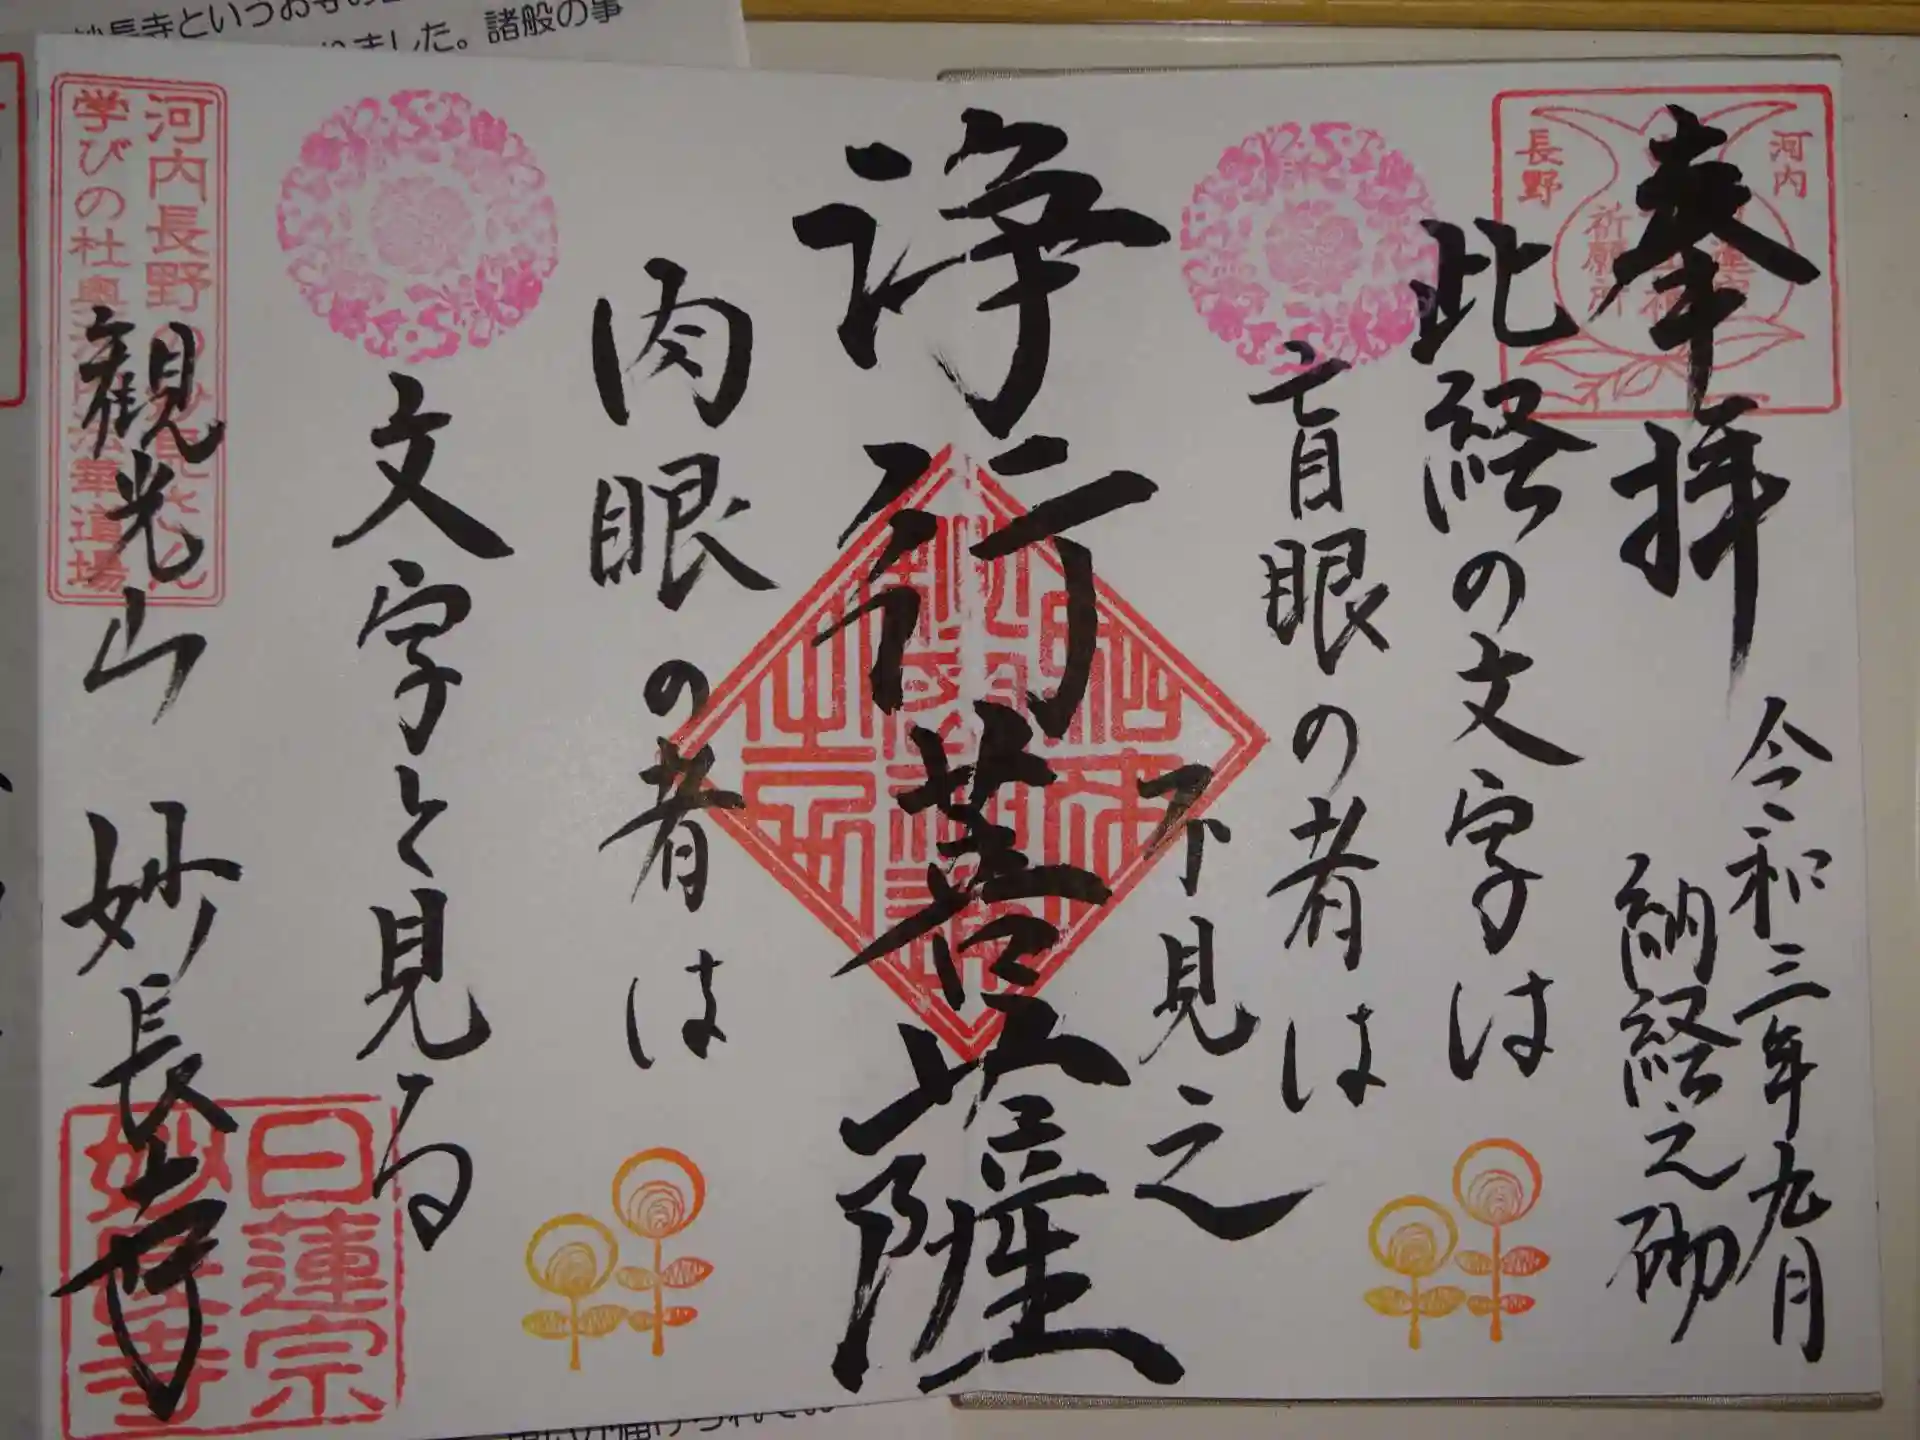 奉拝
令和三年九月
納経之砌
此経の文字は
盲眼の者は
不見之
浄行菩薩
肉眼の者は
文字と見る
観光山 妙長寺
河内
長野
祈願所
河内長野の
学びの杜
法華道場
日蓮宗
妙長寺
妙長寺というお寺の
ました。諸般の事